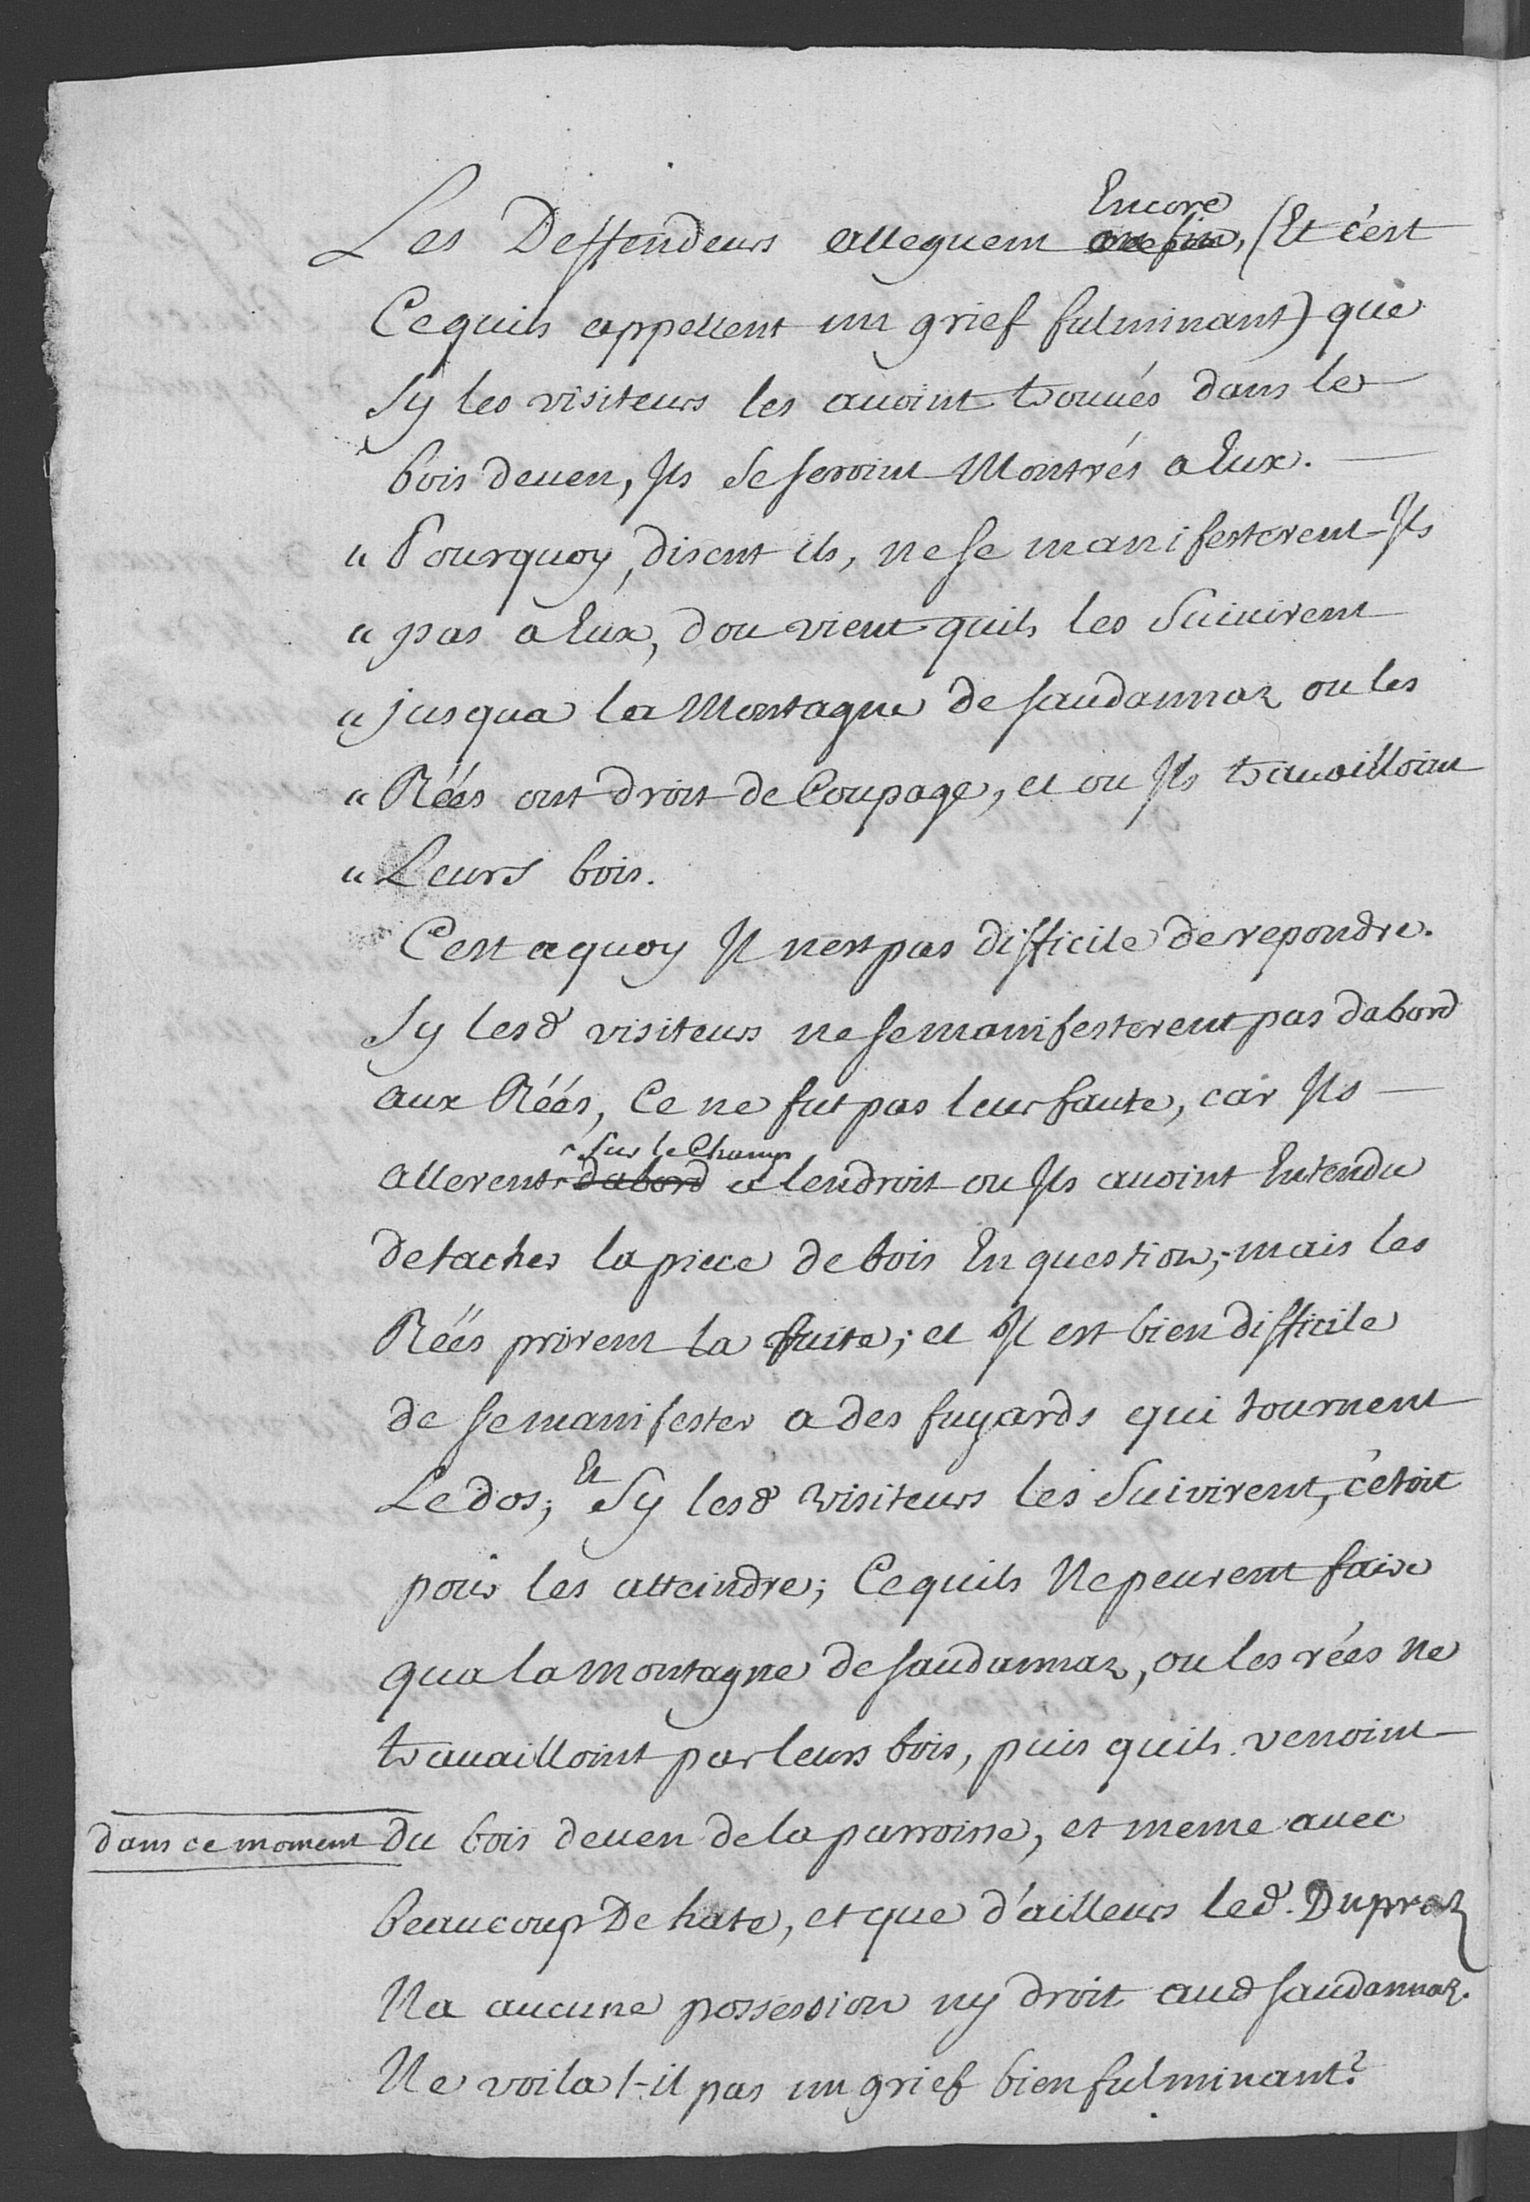 Encore
Les Deffendeurs alleguent enfin, (Et c'est
Cequils appellent un grief fulminant) que
Sy les visiteurs les avoint trouvés dans le
bois deven, Ils se seroint Montrés a Eux.
" Pourquoy, disent ils, ne se manifesterent-Ils
" pas a Eux, dou vient quils les Suivirent
" jusqua la Montagne de saudannaz ou les
" Réés ont droit de Coupage, et ou Ils travailloint
" Leurs bois.
C'est aquoy Il nest pas difficile de repondre.
Sy lesd visiteurs ne se manifesterent pas dabord
aux Réés, Ce ne fut pas leur faute, car Ils
Sur le Champ
allerent dabord a lendroit ou Ils avoint Entendu
detacher la piece de bois En question; mais les
Réés prirent la fuite; et Il est bien difficile
de se manifester a des fuyards qui tournent
Le dos; Et Sy lesd visiteurs les Suivirent, c'etoit
pour les atteindre; Cequils Ne peurent faire
qua la montagne de saudannaz, ou les rées Ne
travailloint pas leurs bois, puis quils venoint
dans ce moment du bois deven de la parroisse, et meme avec
beaucoup De hate, et que d'ailleurs led. Dupraz
Na aucune possession ny droit aud saudannaz.
Ne voila t-il pas un grief bien fulminant?